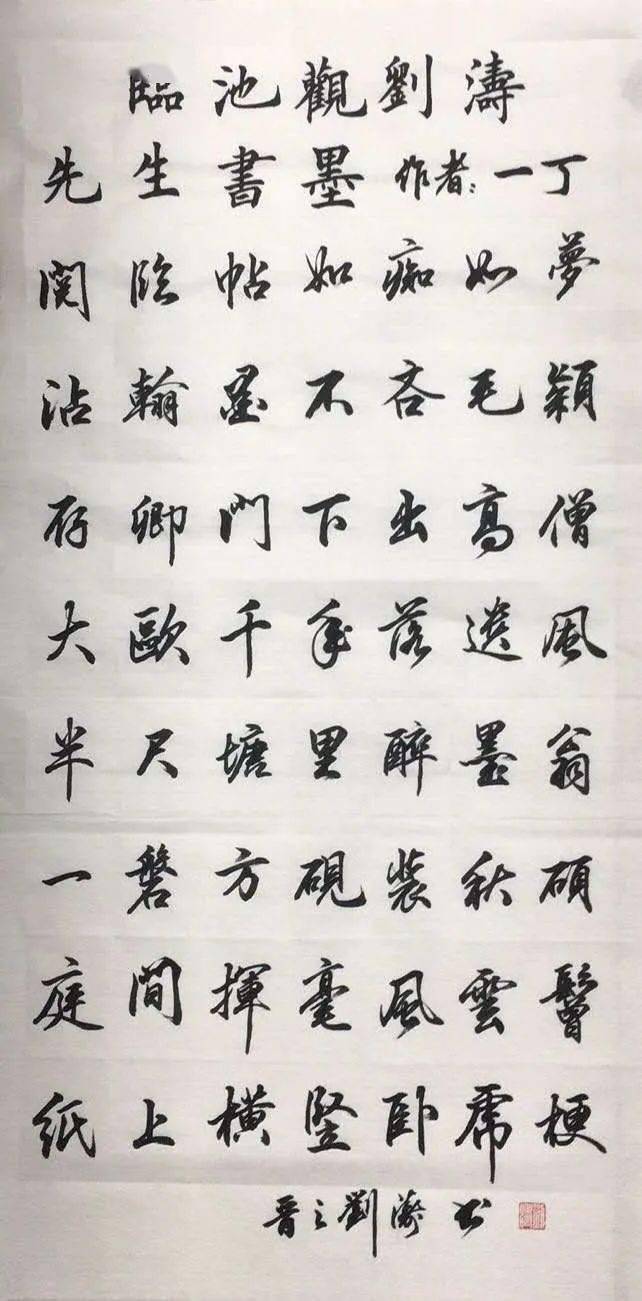 臨池觀劉濤
先生書墨 作者:一丁
閱臨帖如痴如夢
沾翰墨不吝毛穎
存卿門下出高僧
大歐千年落遺風
半尺塘里醉墨翁
一磐方硯裝秋碩
庭間揮毫風雲鬢
紙上橫竪卧虎梗
晋之劉濤书